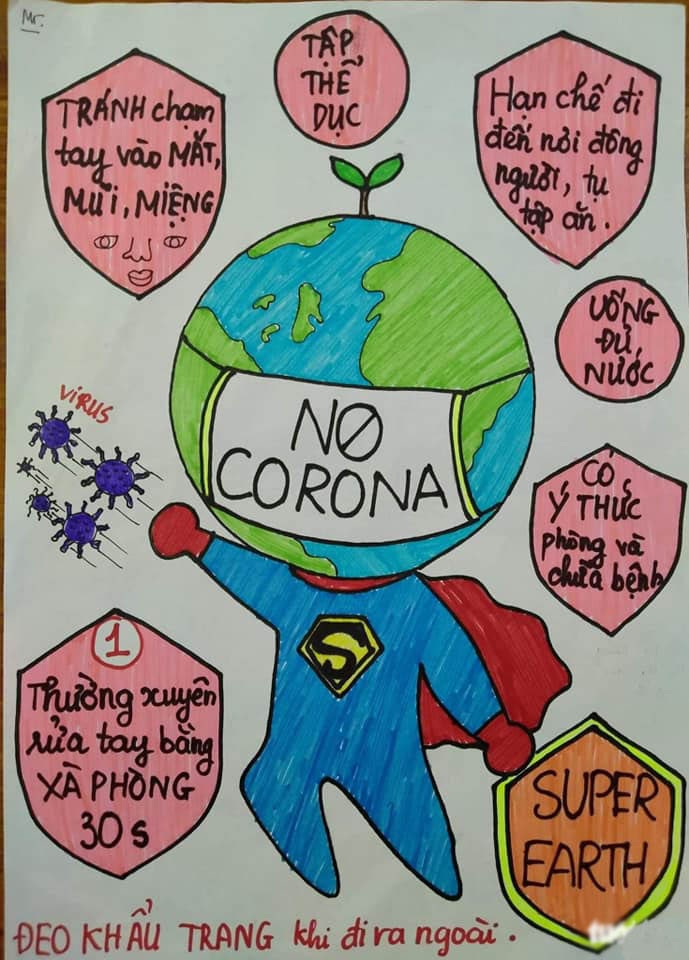 Mr.
TẬP
THỂ
DỤC
TRÁNH chạm
tay vào MẮT,
MŨI, MIỆNG
Hạn chế đi
đến nơi đông
người, tụ
tập ăn.
UỐNG
ĐỦ
NƯỚC
VIRUS
NO
CORONA
CÓ
Ý THỨC
phòng và
chữa bệnh
S
1
Thường xuyên
rửa tay bằng
XÀ PHÒNG
30s
SUPER
EARTH
ĐEO KHẨU TRANG khi đi ra ngoài.